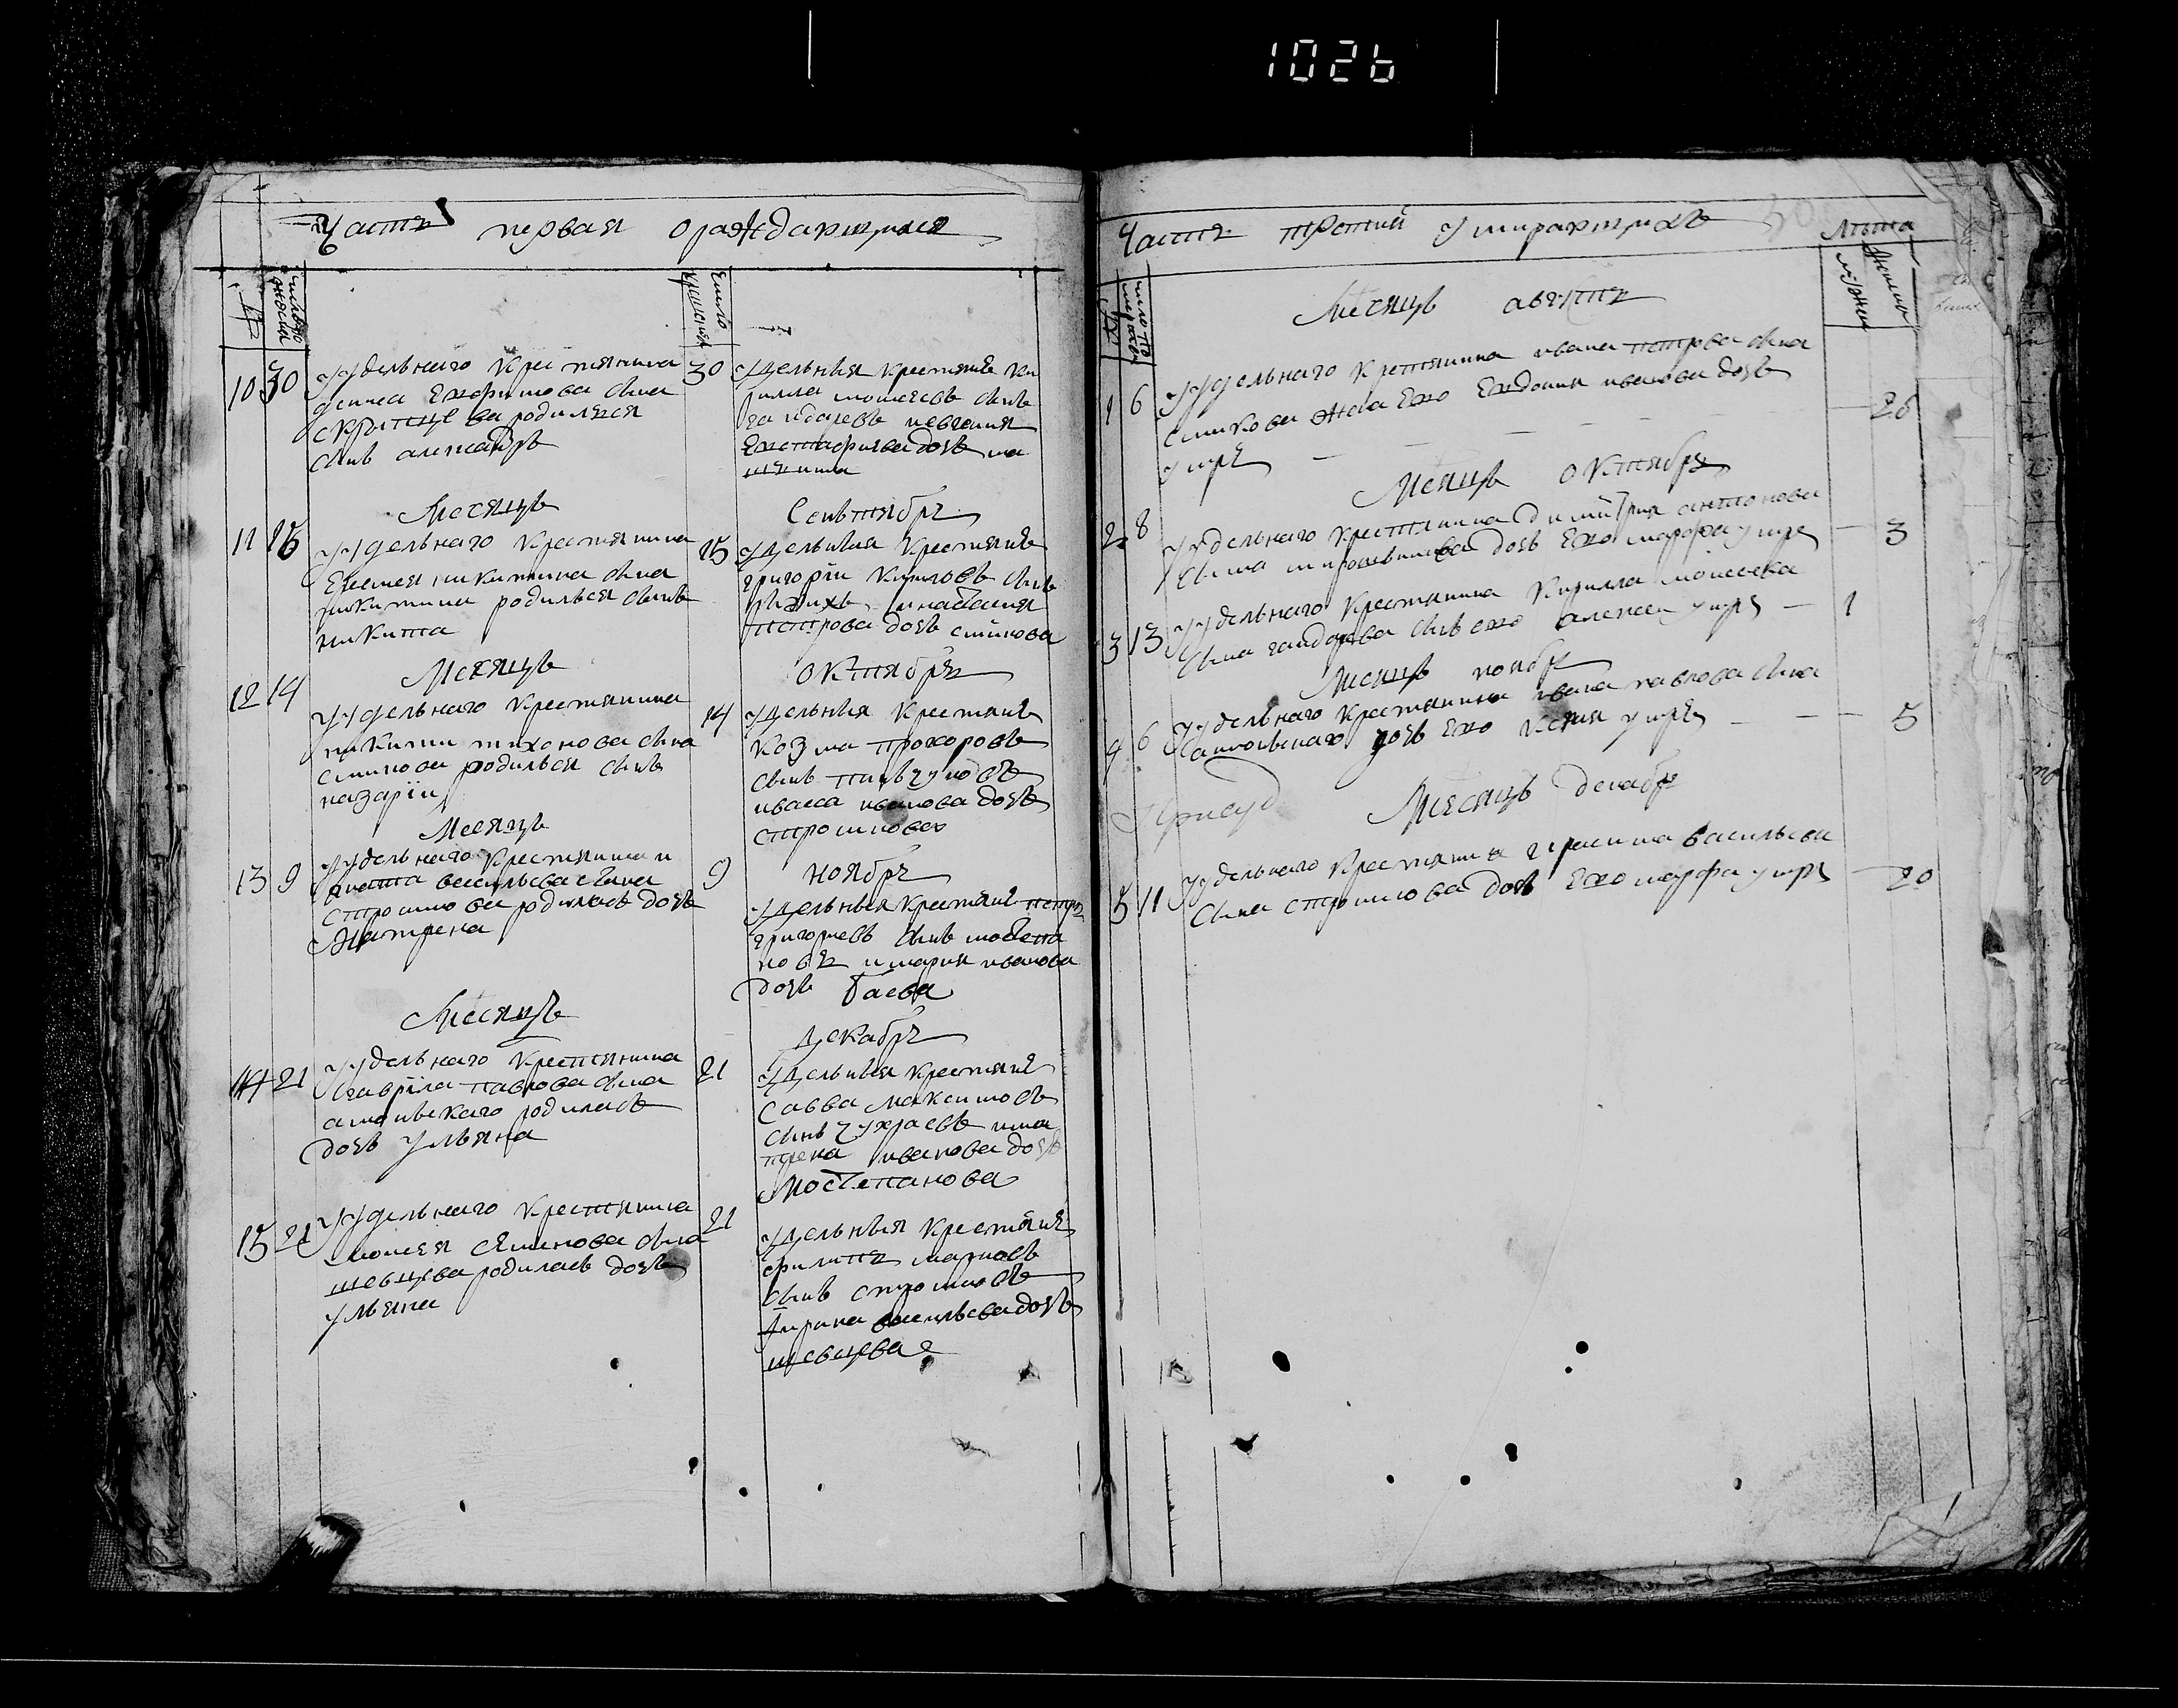 1026
Часть первая ораждающихся
№
число рожденія
Е число крещенія
10 30 У удельнаго крестянина
дениса Ехофимова сына
родился
сынъ алеѯандръ
30 Удельныя крестяне ки
рилла моисеевъ сынъ
гайдаревъ иевгения
Еѵстафиева дочь ма
Месяцъ Сеньтябрь
11 15 У удельнаго крестянина
Еремея никитина сына
никитина родилъся сынъ
никита
15 Удельныя крестяне
григорiи сынъ
инастасия
петрова дочь
Месяцъ октябрь
12 14 У удельнаго крестянина
никиты тихонова сына
родилъся сынъ
назарiи
14 Удельныя крестяне
козма прохоровъ
сынъ
иванова дочь
Месяцъ ноябрь
13 9 У удельнаго крестянина и
васильева сына
родилась дочь
Матрена
9 Удельныя крестяне петръ
григориевъ сынъ мостепа
новъ имария иванова
дочь баева
Месяцъ Декабрь
14 21 У удельнаго крестянина
гаврiла павлова сына
родилась
дочь ульяна
21 Удельныя крестяне
Савва максимовъ
сынъ чухраевъ има
трена иванова дочь
Мостепанова
15 21 У удельнаго крестянина
моисея семенова сына
шевцева родилась дочь
ульяна
21 Удельныя крестяне
филиппъ марковъ
сынъ
Ирина васильева дочь
шевцева
Часть третия умирающихъ
Лѣта
мужеск
женск
Месяцъ августъ
1 6 У удельнаго крестянина ивана петрова сына
жена Ево Евдокия иванова дочь
умре 26
Месяцъ октябрь
2 8 У удельнаго крестянина димитрия антонова
сына дочь Ево марфа умре 3
3 13 У удельнаго крестянина кирилла моисеева
сына гайдарева сынъ ево алексеи умре 1
Месяцъ ноябрь
4 6 У удельнаго крестянина ивана павлова сына
дочь Ево умре 5
Месяцъ декабрь
5 11 У удельнаго крестянина герасима васильева
сына дочь Ево марфа умре 20